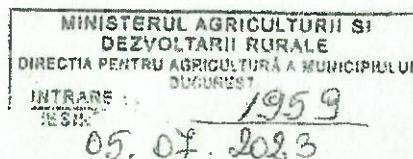 MINISTERUL AGRICULTURII SI
DEZVOLTARII RURALE
DIRECTIA PENTRU AGRICULTURĂ A MUNICIPIULUI
BUCUREST
INTRARE : 1959
IESIRE
05. 07. 2023